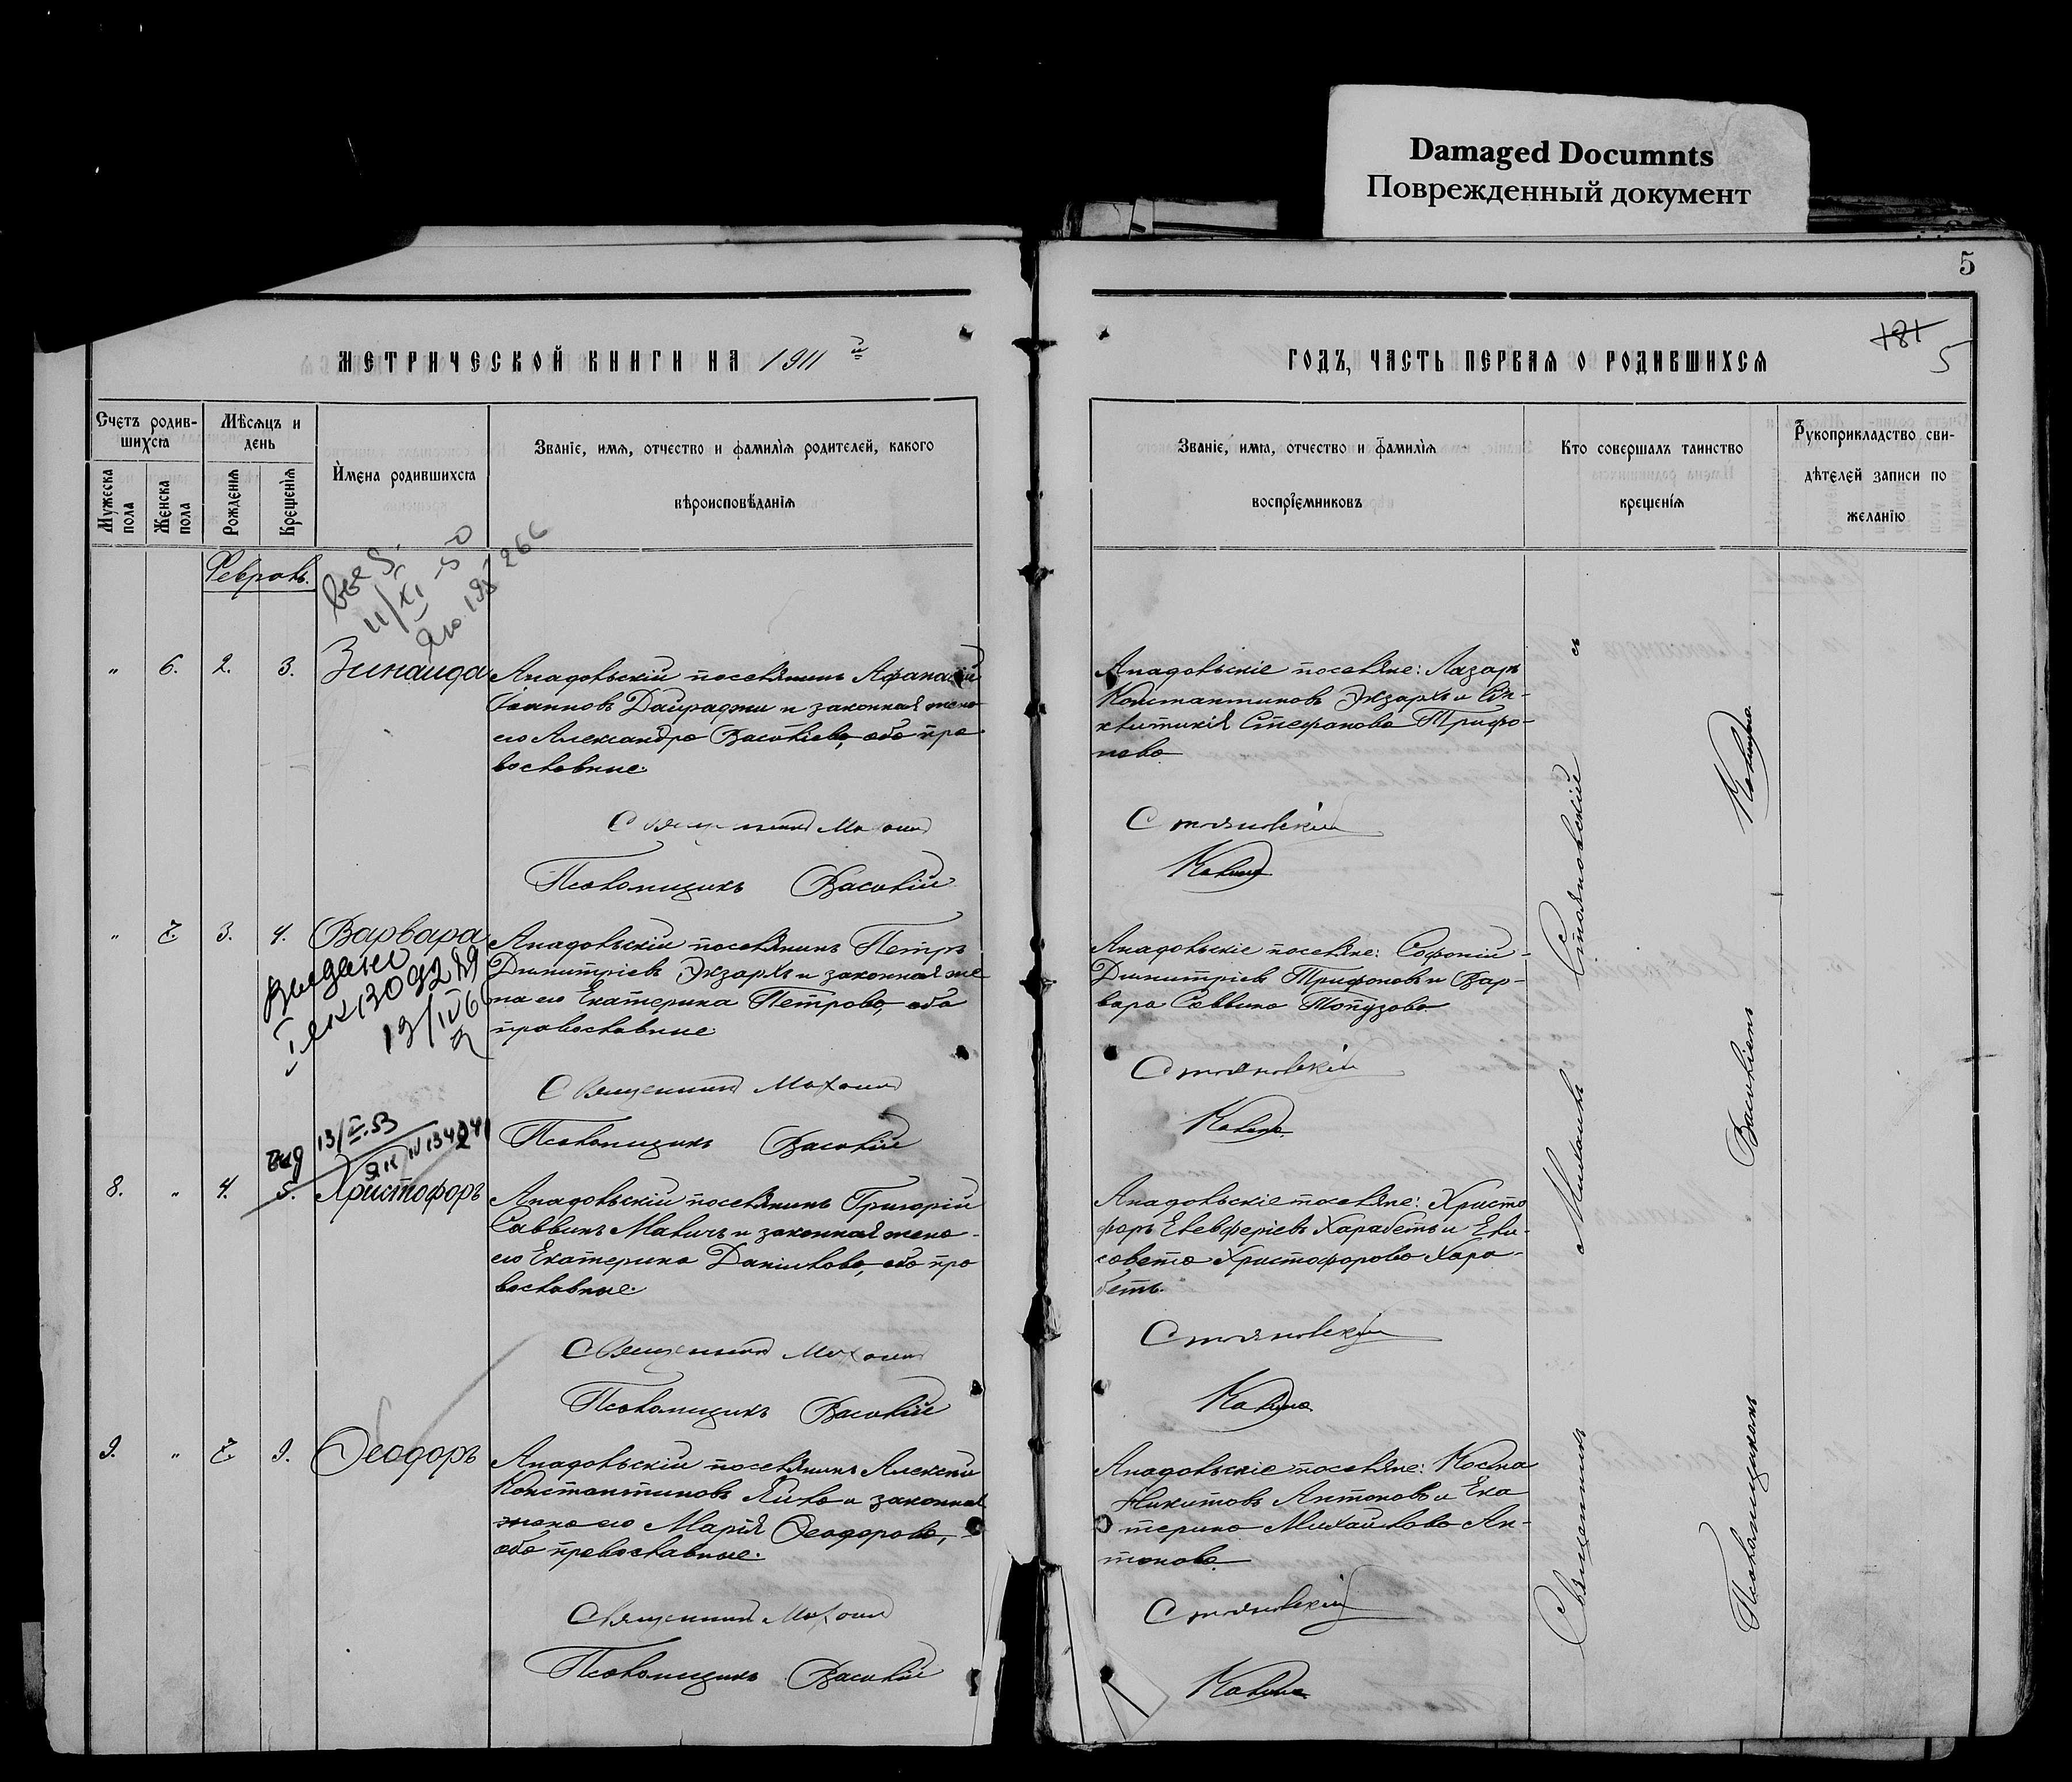 Damaged Documnts
Поврежденный документ
5
181
5
МЕТРИЧЕСКОЙ КНИГИ НА 1911 й
ГОДЪ, ЧАСТЬ ПЕРВАЯ О РОДИВШИХСЯ
Счетъ родив-
шихся
Мѣсяцъ и
день
Имена родившихся
Званіе, имя, отчество и фамилія родителей, какого
вѣроисповѣданія
Мужеска
пола
Женска
пола
Рожденія
Крещенія
Званіе, имя, отчество и фамилія
воспріемниковъ
Кто совершалъ таинство
крещенія
Рукоприкладство сви-
дѣтелей записи по
желанію
Февраль.
11/XI-50
" 6. 2. 3. Зинаида
Анадольскій поселянинъ Афанасій
Іоанновъ Даираджи и законная жена
его Александра Васильева, оба пра
вославные.
Священникъ Михаилъ
Псаломщикъ Василій
Анадольскіе поселяне: Лазарь
Константиновъ Экзархъ и Син-
клитикія Стефанова Трифо-
нова
Стояновскій
Калина
" 7. 3. 4. Варвара
Выдано
Анадольскій поселянинъ Петръ
Димитріевъ Экзархъ и законная же
на его Екатерина Петрова, оба
православные
Священникъ Михаилъ
Псаломщикъ Василій
Анадольскіе поселяне: Софоній
Димитріевъ Трифоновъ и Вар-
вара Саввина Топузова
Стояновскій
Калина
13/II-53
8. " 4. 5. Христофоръ
Анадольскій поселянинъ Григорій
Саввинъ Маличъ и законная жена
его Екатерина Даніилова, оба пра
вославные.
Священникъ Михаилъ
Псаломщикъ Василій
Анадольскіе поселяне: Христо
форъ Елевферіевъ Харабетъ и Ели-
савета Христофорова Хара-
бетъ.
Стояновскій
Калина
9. " 7. 9. Ѳеодоръ
Анадольскій поселянинъ Алексій
Константиновъ Яйло и законная
жена его Марія Ѳеодорова,
оба православные.
Священникъ Михаилъ
Псаломщикъ Василій
Анадольскіе поселяне: Косма
Никитовъ Антоновъ и Ека
терина Михайлова Ан-
тонова
Стояновскій
Калина
Священникъ Михаилъ Стояновскій съ
Псаломщикомъ Василіемъ Калина